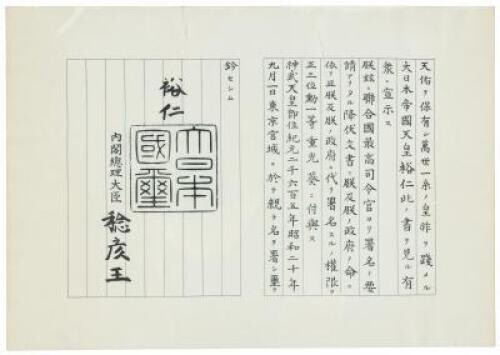 天佑ヲ保有シ萬世一系ノ皇祚ヲ踐メル
大日本帝國天皇裕仁此ノ書ヲ見ル有
衆ニ宣示ス
朕玆ニ聯合國最高司令官ヨリ署名ノ要
請アリタル降伏文書ニ朕及朕ノ政府ノ命ニ
依リ且朕及朕ノ政府ニ代リ署名スルノ權限ヲ
正三位勲一等重光葵ニ付與ス
神武天皇卽位紀元二千六百五年昭和二十年
九月一日東京宮城ニ於テ親ラ名ヲ署シ璽ヲ
鈐セシム
裕仁
大日本國璽
內閣總理大臣
稔彥王